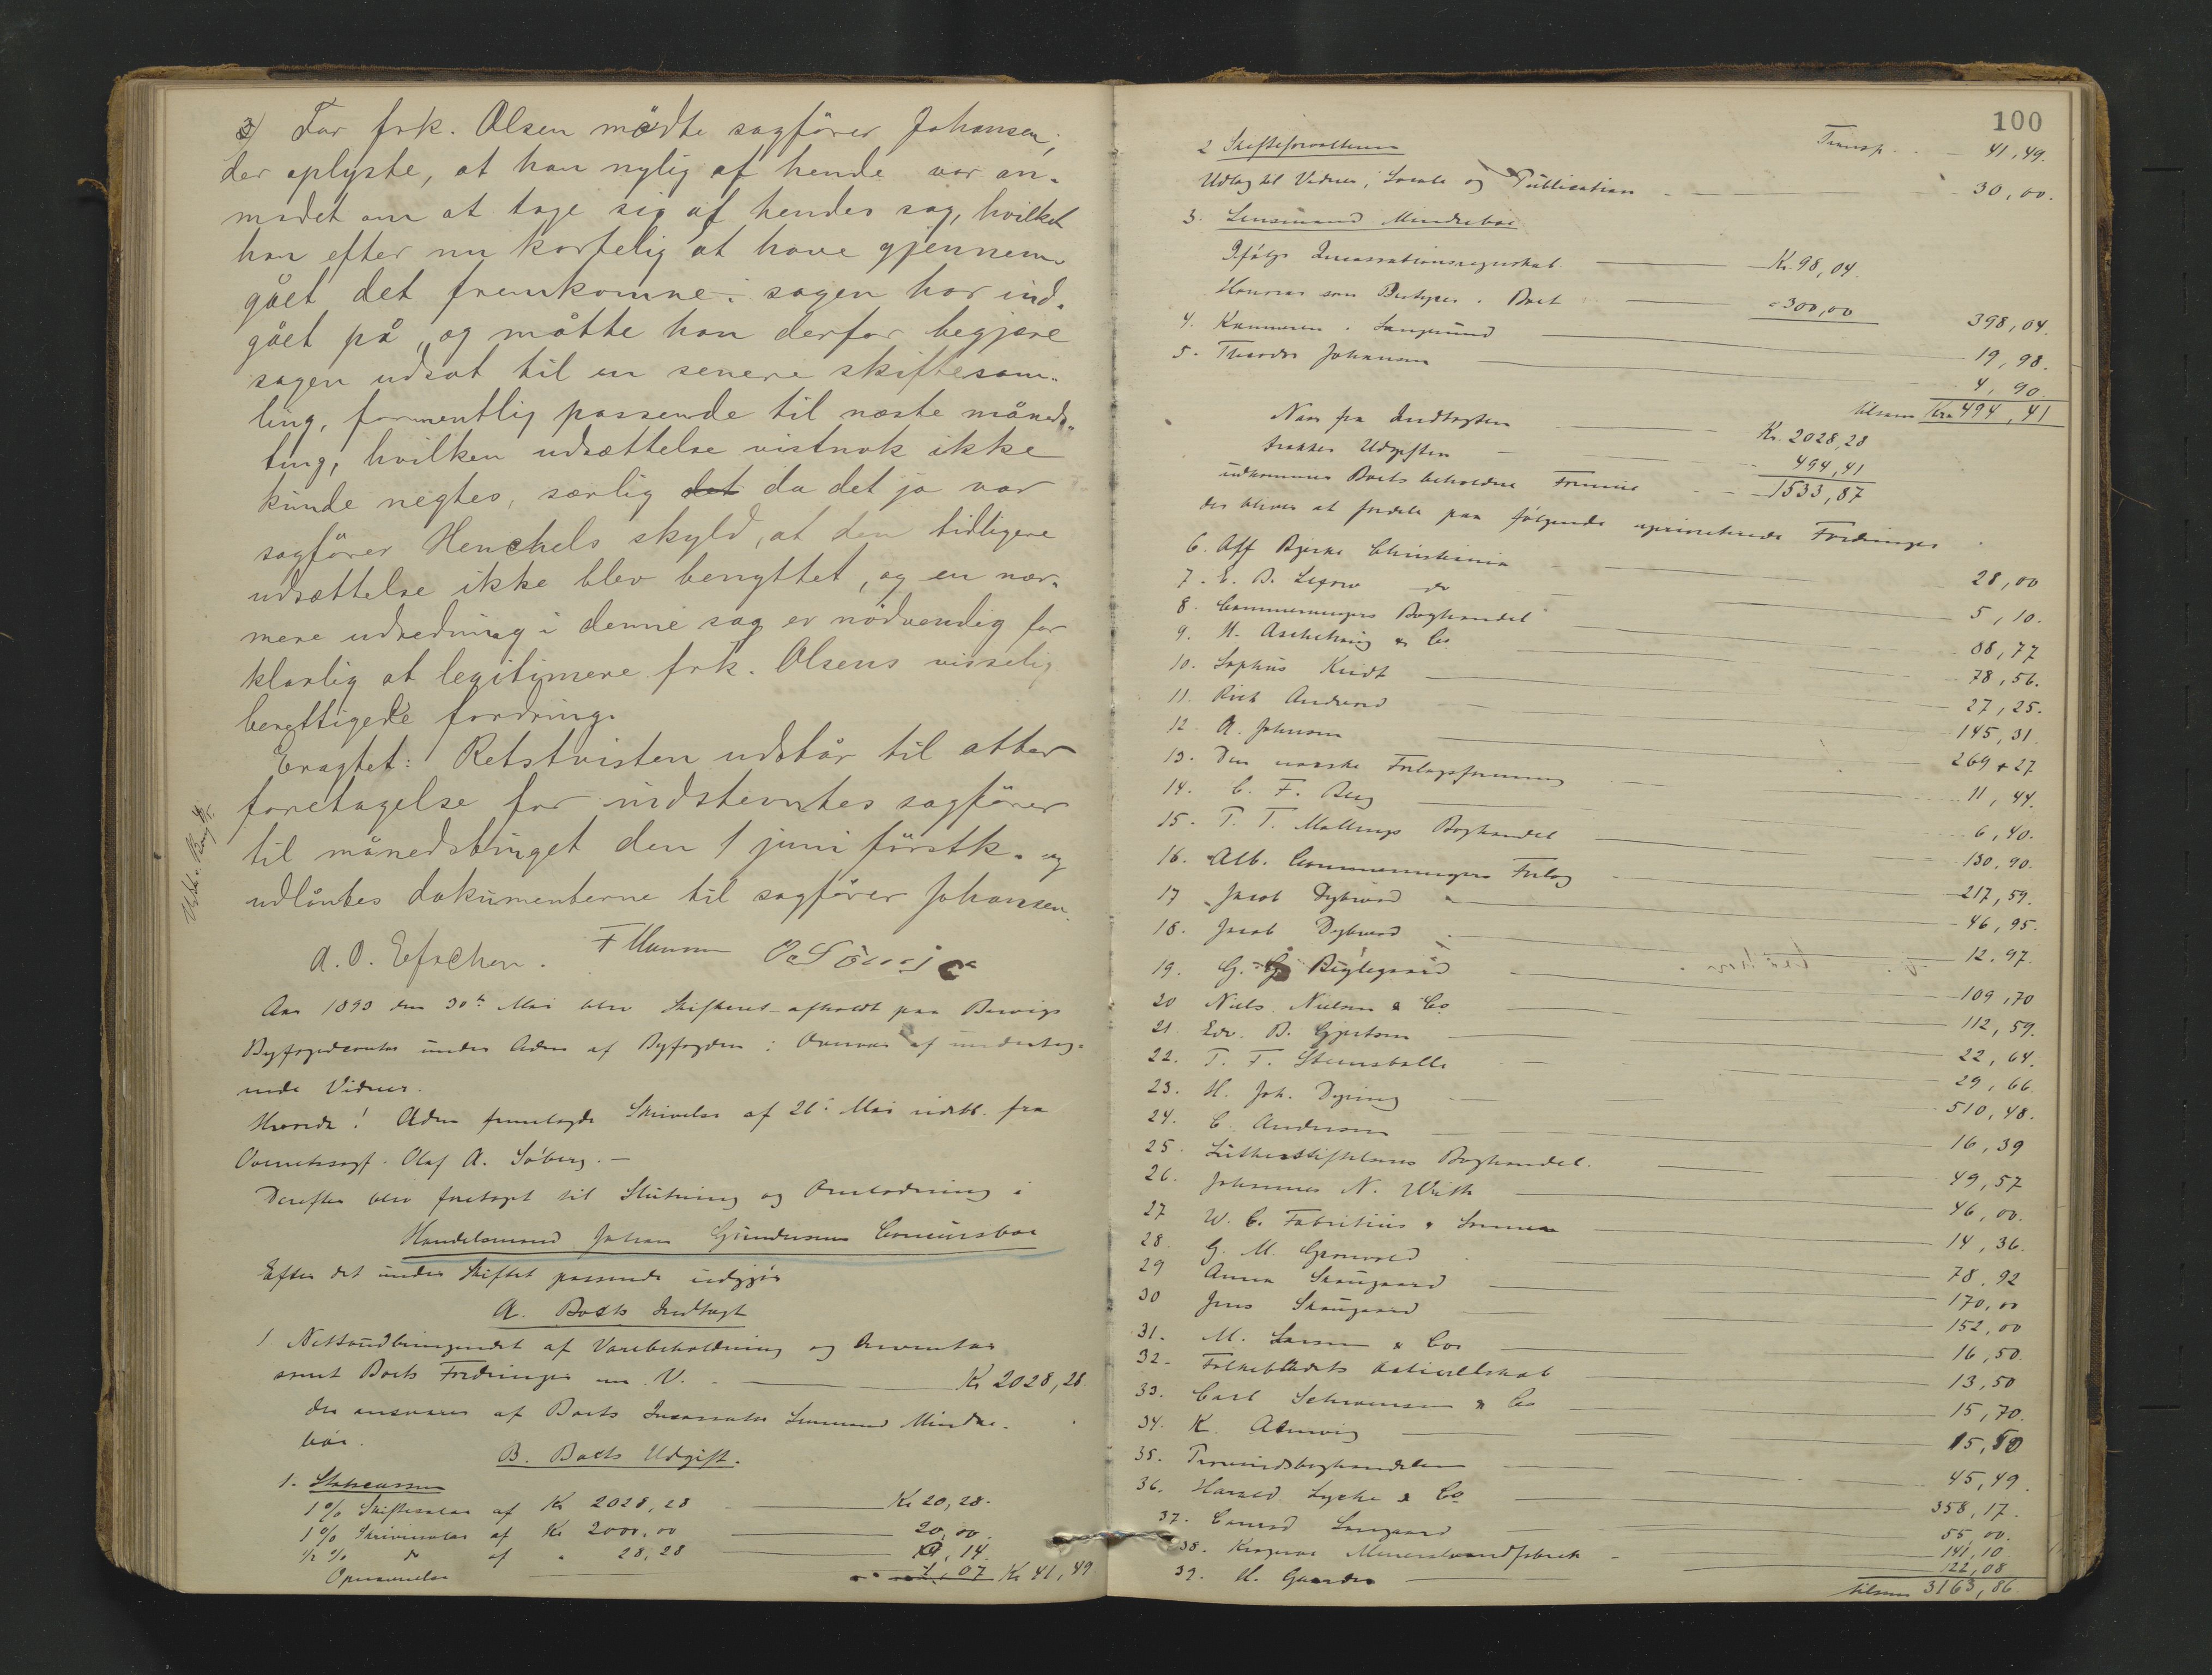 3) For frk. Olsen mødte sagfører Johansen,
der oplyste, at han nylig af hende var an-
modet om at tage sig af hendes sag, hvilket
han efter nu kortelig at have gjennem-
gået det fremkomne i sagen har ind-
gået på, og måtte han derfor begjære
sagen udsat til en senere skiftesam-
ling, formentlig passende til næste måneds-
ting, hvilken udsættelse vistnok ikke
kunde negtes, særlig det da det jo var
sagfører Henchels skyld, at den tidligere
udsættelse ikke blev benyttet, og en nær-
mere udredning i denne sag er nødvendig for
klarlig at legitimere frk. Olsens visselig
berettigede fordring.
Eragtet: Retstvisten udstår til atter
foretagelse for indstevntes sagfører
til månedstinget den 1 juni førstk. og
udlåntes dokumenterne til sagfører Johansen.
Aar 1893 den 30te Mai blev Skifteret afholdt paa Brevigs
Byfogedcontor under Adm af Byfogden i Overvær af underteg-
nede Vidner.
Hvorda! Adm fremlagde Skrivelse af 26 Mai sidstl. fra
Overretssagf. Olaf A. Søberg. —
Derefter blev foretaget til Slutning og Omlodning i
Handelsmand Johan Gundersens Concursbo
Efter det under Skiftet passerede udgjør
A. Boets Indtægt
1 Nettoudbringendet af Varebeholdning og Inventar
samt Boets Fordringer m. V. — Kr 2028,28
der ansvares af Boets Incassator Lensmand Mindre-
bøe.
B. Boets Udgift.
1. Statscassen
1 % Skiftesalær af Kr 2028,28 — Kr 20,28.
1 % Skriversalær af Kr 2000,00 — 20,00.
1/2 % do af " 28,28 — 0,14.
Opsummelse — 1,07 Kr 41,49
100
Transp. — 41,49.
2 Skifteforvalteren
Udlæg til Vidner, Locale og Publication — 30,00.
3. Lensmand Mindrebøe
Ifølge Incassationsregnskab — Kr. 98,04.
Honorar som Bestyrer i Boet — " 300,00 398,04.
4. Kæmneren i Langesund — 19,98.
5. Theodor Johansen — 4,90.
tilsam Kr 494,41
Naar fra Indtægten — Kr. 2028,28
trækkes Udgiften — 494,41
udkommer Boets beholdne Formue — 1533,87
der bliver at fordele paa følgende uprioriterede Fordringer
6. Aff Bjerke Christiania — 28,00
7. do — 5,10.
8. Cammermeyers Boghandel — 88,77
9. H. Aschehoug & Co — 78,56.
10. Sophus Kvidt — 27,25.
11. Rich Andvord — 145,31.
12. A. Johnsen — 269,27
13. Den norske Forlagsforening — 11,44.
14. C. F. Berg — 6,40.
15. P. T. Mallings Boghandel — 130,90.
16. Alb. Cammermeyers Forlag — 217,59.
17 Jacob Dybwad — 46,95.
18. Jacob Dybwad — 12,97.
19. G. — 109,70
20 Niels Nielsen & Co — 112,59.
21. Edv. B. Gjertsen — 22,64.
22. P. F. Steensballe — 29,66
23. H. Joh. Dyring — 510,48.
24. C. Andersen — 16,39
25. Lutherstiftelsens Boghandel. — 49,57
26. Johannes N. Wiith — 46,00.
27 W. C. Fabritius & Sønner — 14,36.
28. G. M. Grønvold — 78,92
29 Anna Skaugaard — 170,00
30 Jens Skaugaard — 152,00
31. M. Larsen & Co — 16,50.
32. Folkebladets Actieselskab — 13,50
33. Carl Schwensen & Co — 15,70.
34. K. — 15,50
35. — 45,49.
36. Harald Lyche & Co — 358,17.
37. Conrad Langaard — 55,00.
38. Kragerøe Mineralvandfabrik — 141,10
39. H. Gaarder — 122,08
tilsam 3163,86.